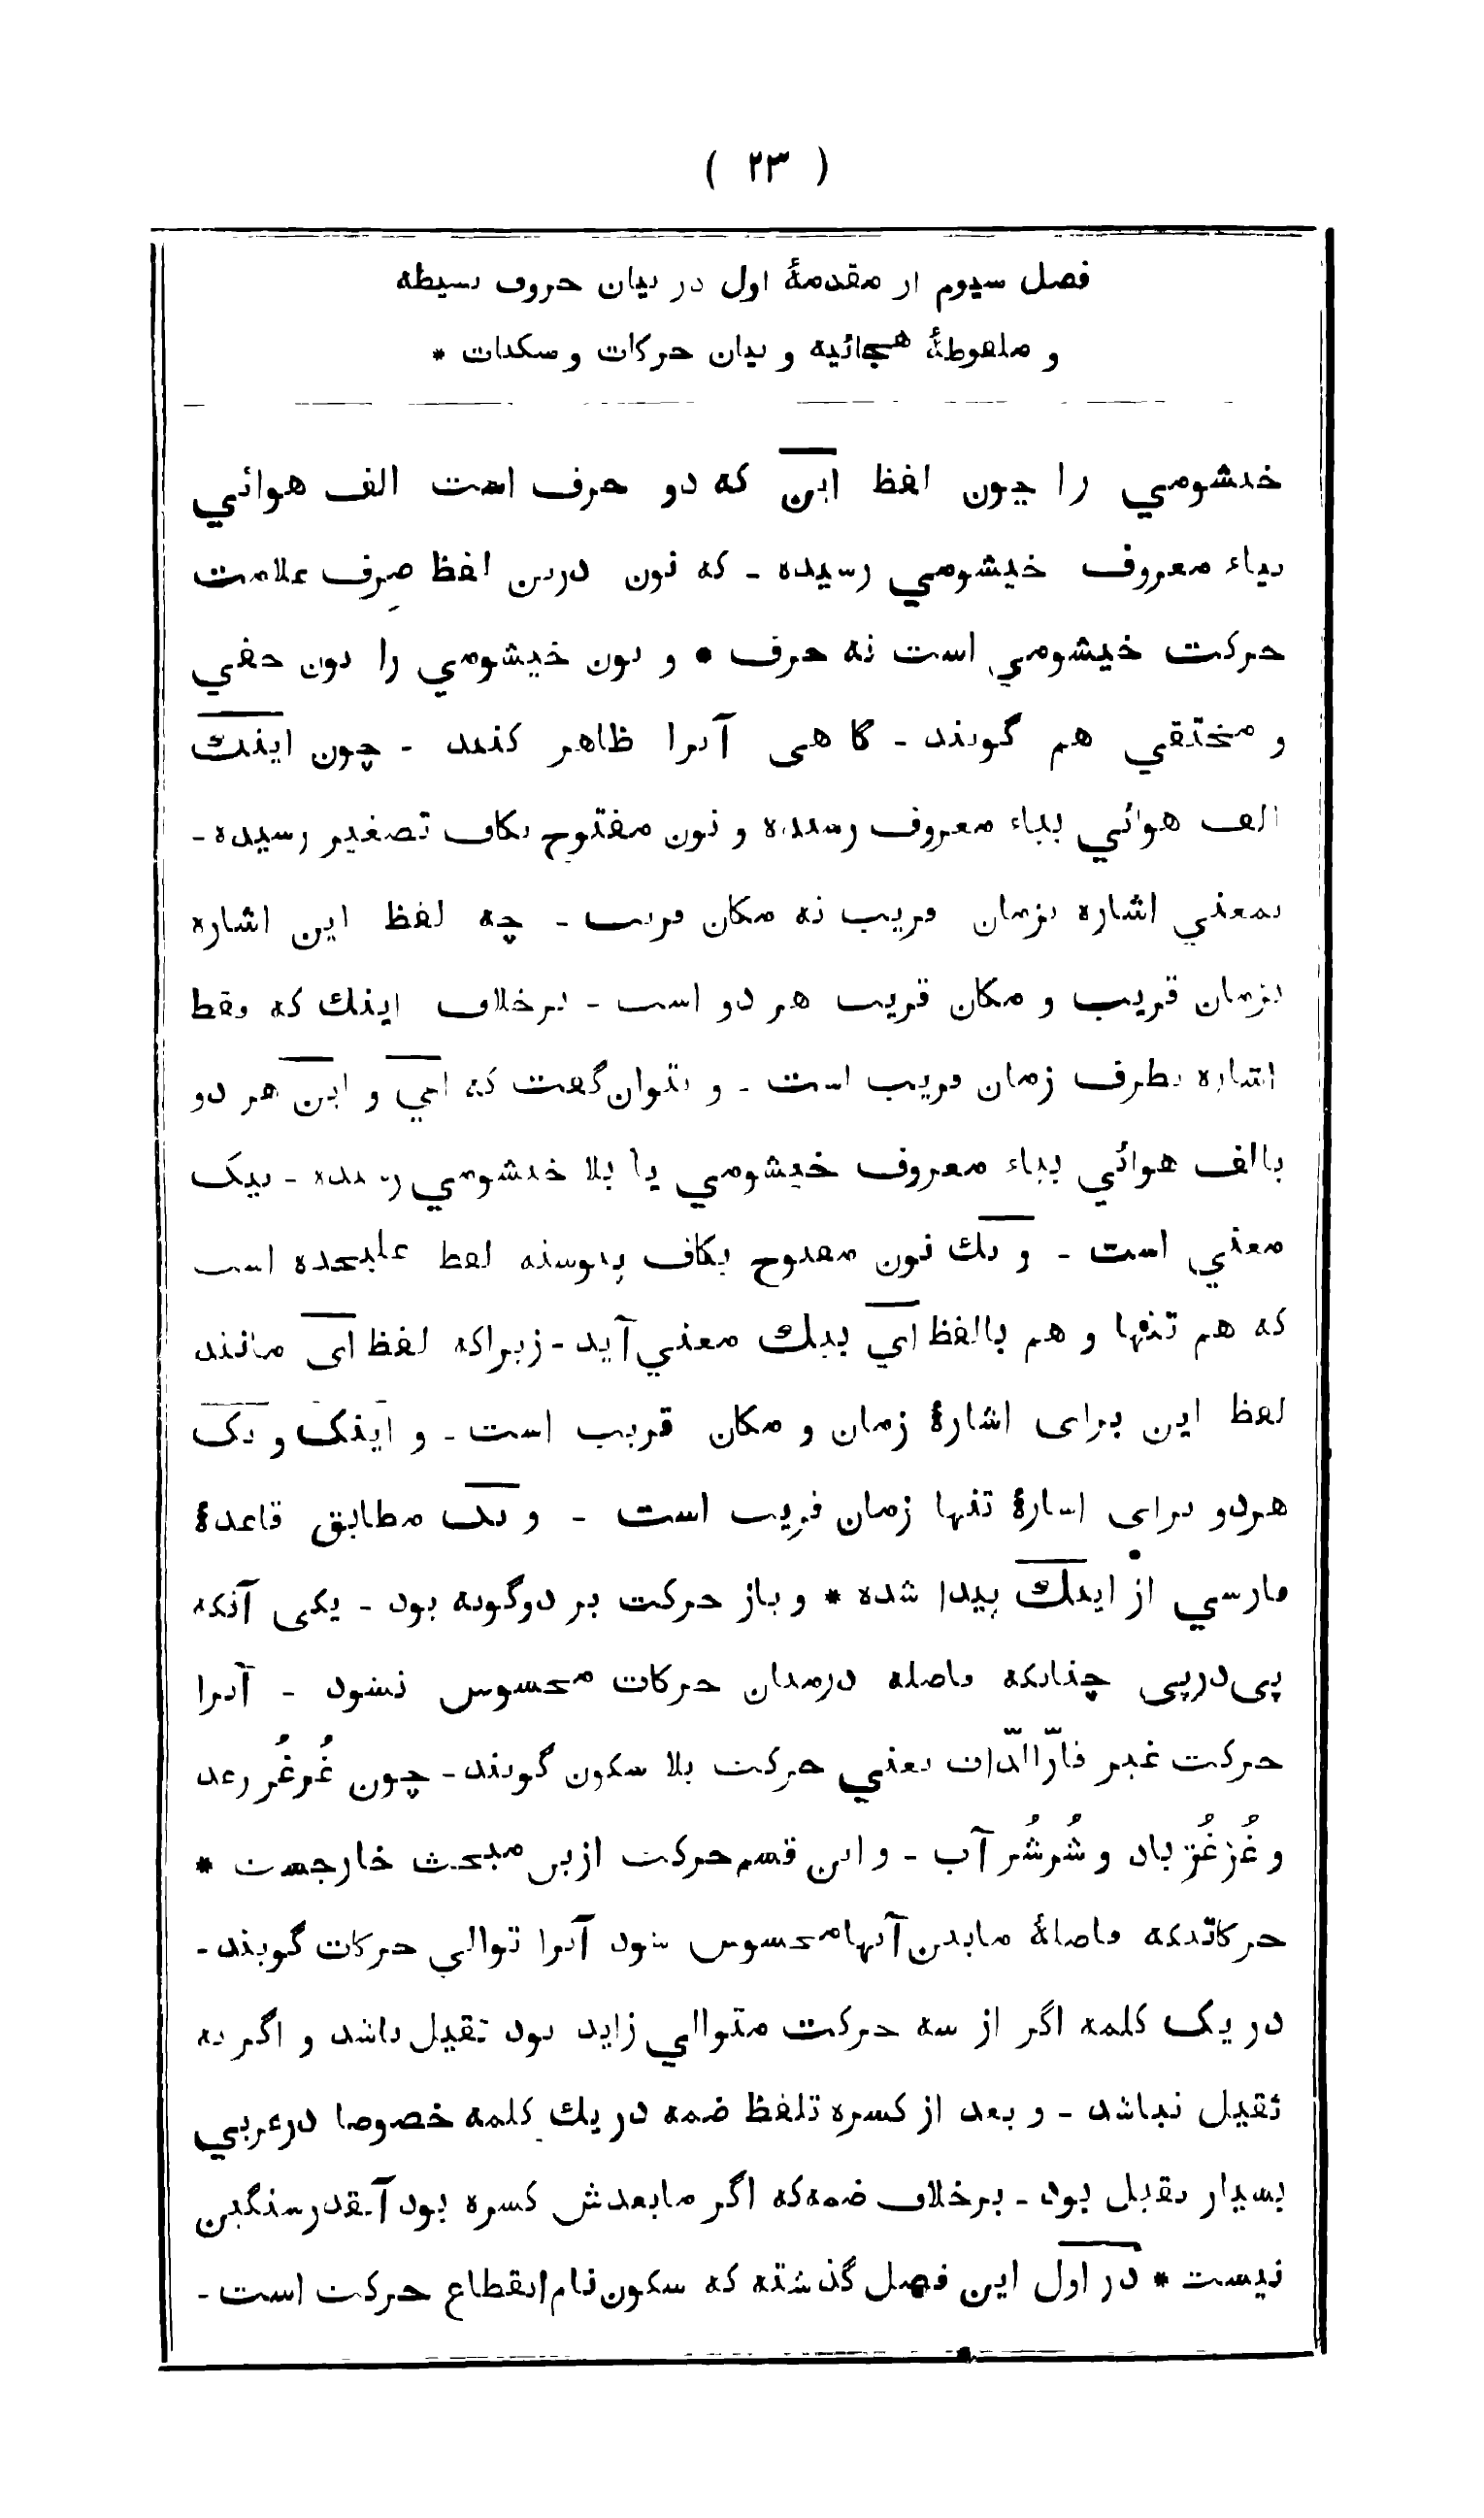 ( ٢٣ )
فصل سيوم از مقدمهٔ اول در بيان حروف بسيطه
و ملفوظهٔ هجائيه و بيان حركات و سكنات *
خيشومي را چون لفظ اين كه دو حرف است الف هوائي
بياء معروف خيشومي رسيده - كه نون درين لفظ صِرف علامت
حركت خيشومي است نه حرف * و نون خيشومي را نون خفي
و مختفي هم گويند - گاهى آنرا ظاهر كنند - چون اينك
الف هوائي بياء معروف رسيده و نون مفتوح بكاف تصغير رسيده -
بمعني اشاره بزمان قريب نه مكان قريب - چه لفظ اين اشاره
بزمان قريب و مكان قريب هر دو است - برخلاف اينك كه فقط
اشاره بطرف زمان قريب است - و بتوان گفت كه اي و اين هر دو
بالف هوائي بياء معروف خيشومي يا بلا خيشومي رسيده - بيک
معني است - و نك نون مفتوح بكاف پيوسته لفظ عليحده است
كه هم تنها و هم بالفظ اي بيك معني آيد - زيراكه لفظ اى مانند
لفظ اين براى اشارهٔ زمان و مكان قريب است - و اينک و نک
هردو براى اشارهٔ تنها زمان قريب است - و نک مطابق قاعدهٔ
فارسي از اينك پيدا شده * و باز حركت بر دوگونه بود - يكى آنكه
پى‌درپى چنانكه فاصله درميان حركات محسوس نشود - آنرا
حركت غير قارّ الذّات يعني حركت بلا سكون گويند - چون غُرغُر رعد
و غُزغُز باد و شُرشُر آب - و اين قسم حركت ازين مبحث خارجست *
حركاتيكه فاصلهٔ مابين آنها محسوس شود آنرا توالي حركات گويند -
در يک كلمه اگر از سه حركت متوالي زايد بود ثقيل باشد و اگر نه
ثقيل نباشد - و بعد از كسره تلفظ ضمه در يك كلمه خصوصا درعربي
بسيار ثقيل بود - برخلاف ضمه‌كه اگر مابعدش كسره بود آنقدر سنگين
نيست * در اول اين فصل گذشته كه سكون نام انقطاع حركت است -